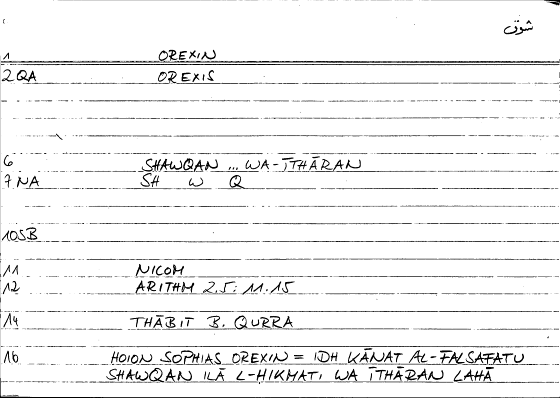 شوق
1 OREXIN
2 QA OREXIS
6 SHAWQAN ... WA-ĪTHĀRAN
7 NA SH W Q
10 SB
11 NICOM
12 ARITHM 2.5: 11.15
14 THĀBIT B. QURRA
16 HOION SOPHIAS OREXIN = IDH KĀNAT AL-FALSAFATU
SHAWQAN ILĀ L-HIKMATI WA ĪTHĀRAN LAHĀ